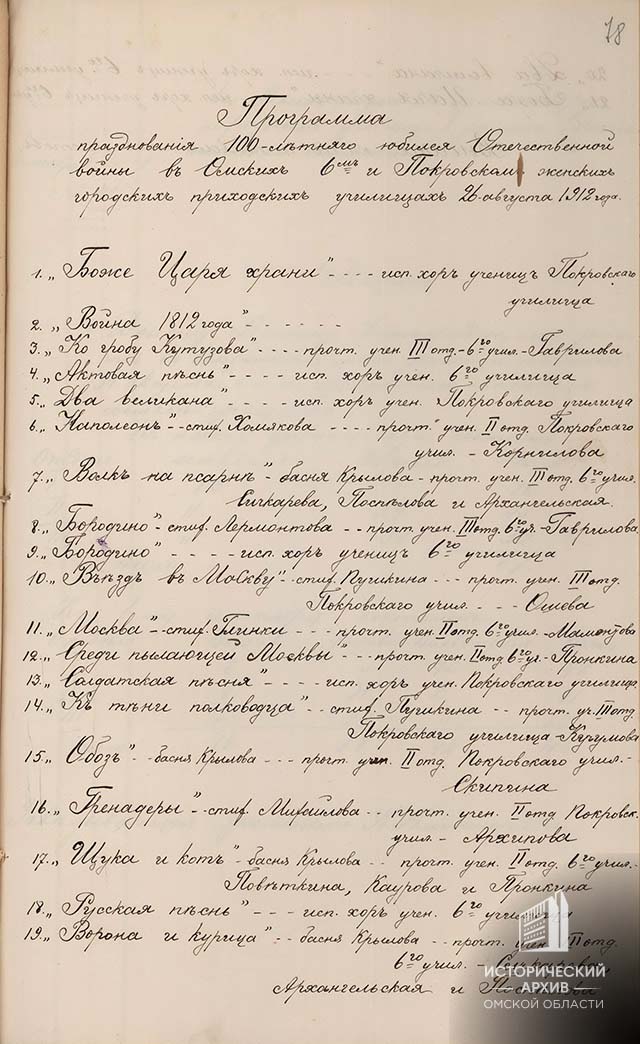 78
Программа
празднованія 100-лѣтняго юбилея Отечественной
войны въ Омскихъ 6мъ и Покровскомъ женскихъ
городскихъ приходскихъ училищахъ 26 августа 1912 года.
1. „Боже Царя храни" - - - - исп. хоръ ученицъ Покровскаго
училища
2. „Война 1812 года" - - - - - -
3. „Ко гробу Кутузова" - - - - прочт. учен. III отд. - 6го учил. - Гаврилова
4. „Актовая пѣснь" - - - - исп. хоръ учен. 6го училища
5. „Два великана" - - - - исп. хоръ учен. Покровскаго училища
6. „Наполеонъ" - стих. Хомякова - - - - прочт. учен. II отд. Покровскаго
учил. - Корнилова
7. „Волкъ на псарнѣ" - басня Крылова - прочт. учен. III отд. 6го учил.
Сичкарева, Поспѣлова и Архангельская.
8. „Бородино" - стих. Лермонтова - - прочт. учен. III отд. 6го уч. - Гаврилова
9. „Бородино" - - - - исп. хоръ ученицъ 6го училища
10. „Въѣздъ въ Москву" - стих. Пушкина - - - прочт. учен. III отд.
Покровскаго учил. - - - - Ошева
11. „Москва" - стих. Глинки - - - прочт. учен. II отд. 6го учил. - Мамонтова
12. „Среди пылающей Москвы" - - прочт. учен. II отд. 6го уч. - Пронкина
13. „Солдатская пѣсня" - - - - исп. хоръ учен. Покровскаго училища
14. „Къ тѣни полководца" - - стих. Пушкина - - прочт. уч. III отд.
Покровскаго училища - Курумова
15. „Обозъ" - басня Крылова - - - прочт. учен. II отд. Покровскаго учил. -
Скипина
16. „Гренадеры" - стих. Михайлова - - прочт. учен. II отд. Покровск.
учил. - Архипова
17. „Щука и котъ" - басня Крылова - - прочт. учен. II отд. 6го учил. -
Повѣткина, Каурова и Пронкина
18. „Русская пѣснь" - - - исп. хоръ учен. 6го училища
19. „Ворона и курица" - - басня Крылова - - прочт. учен. III отд.
6го учил. -
Архангельская и
ИСТОРИЧЕСКИЙ
АРХИВ
ОМСКОЙ ОБЛАСТИ